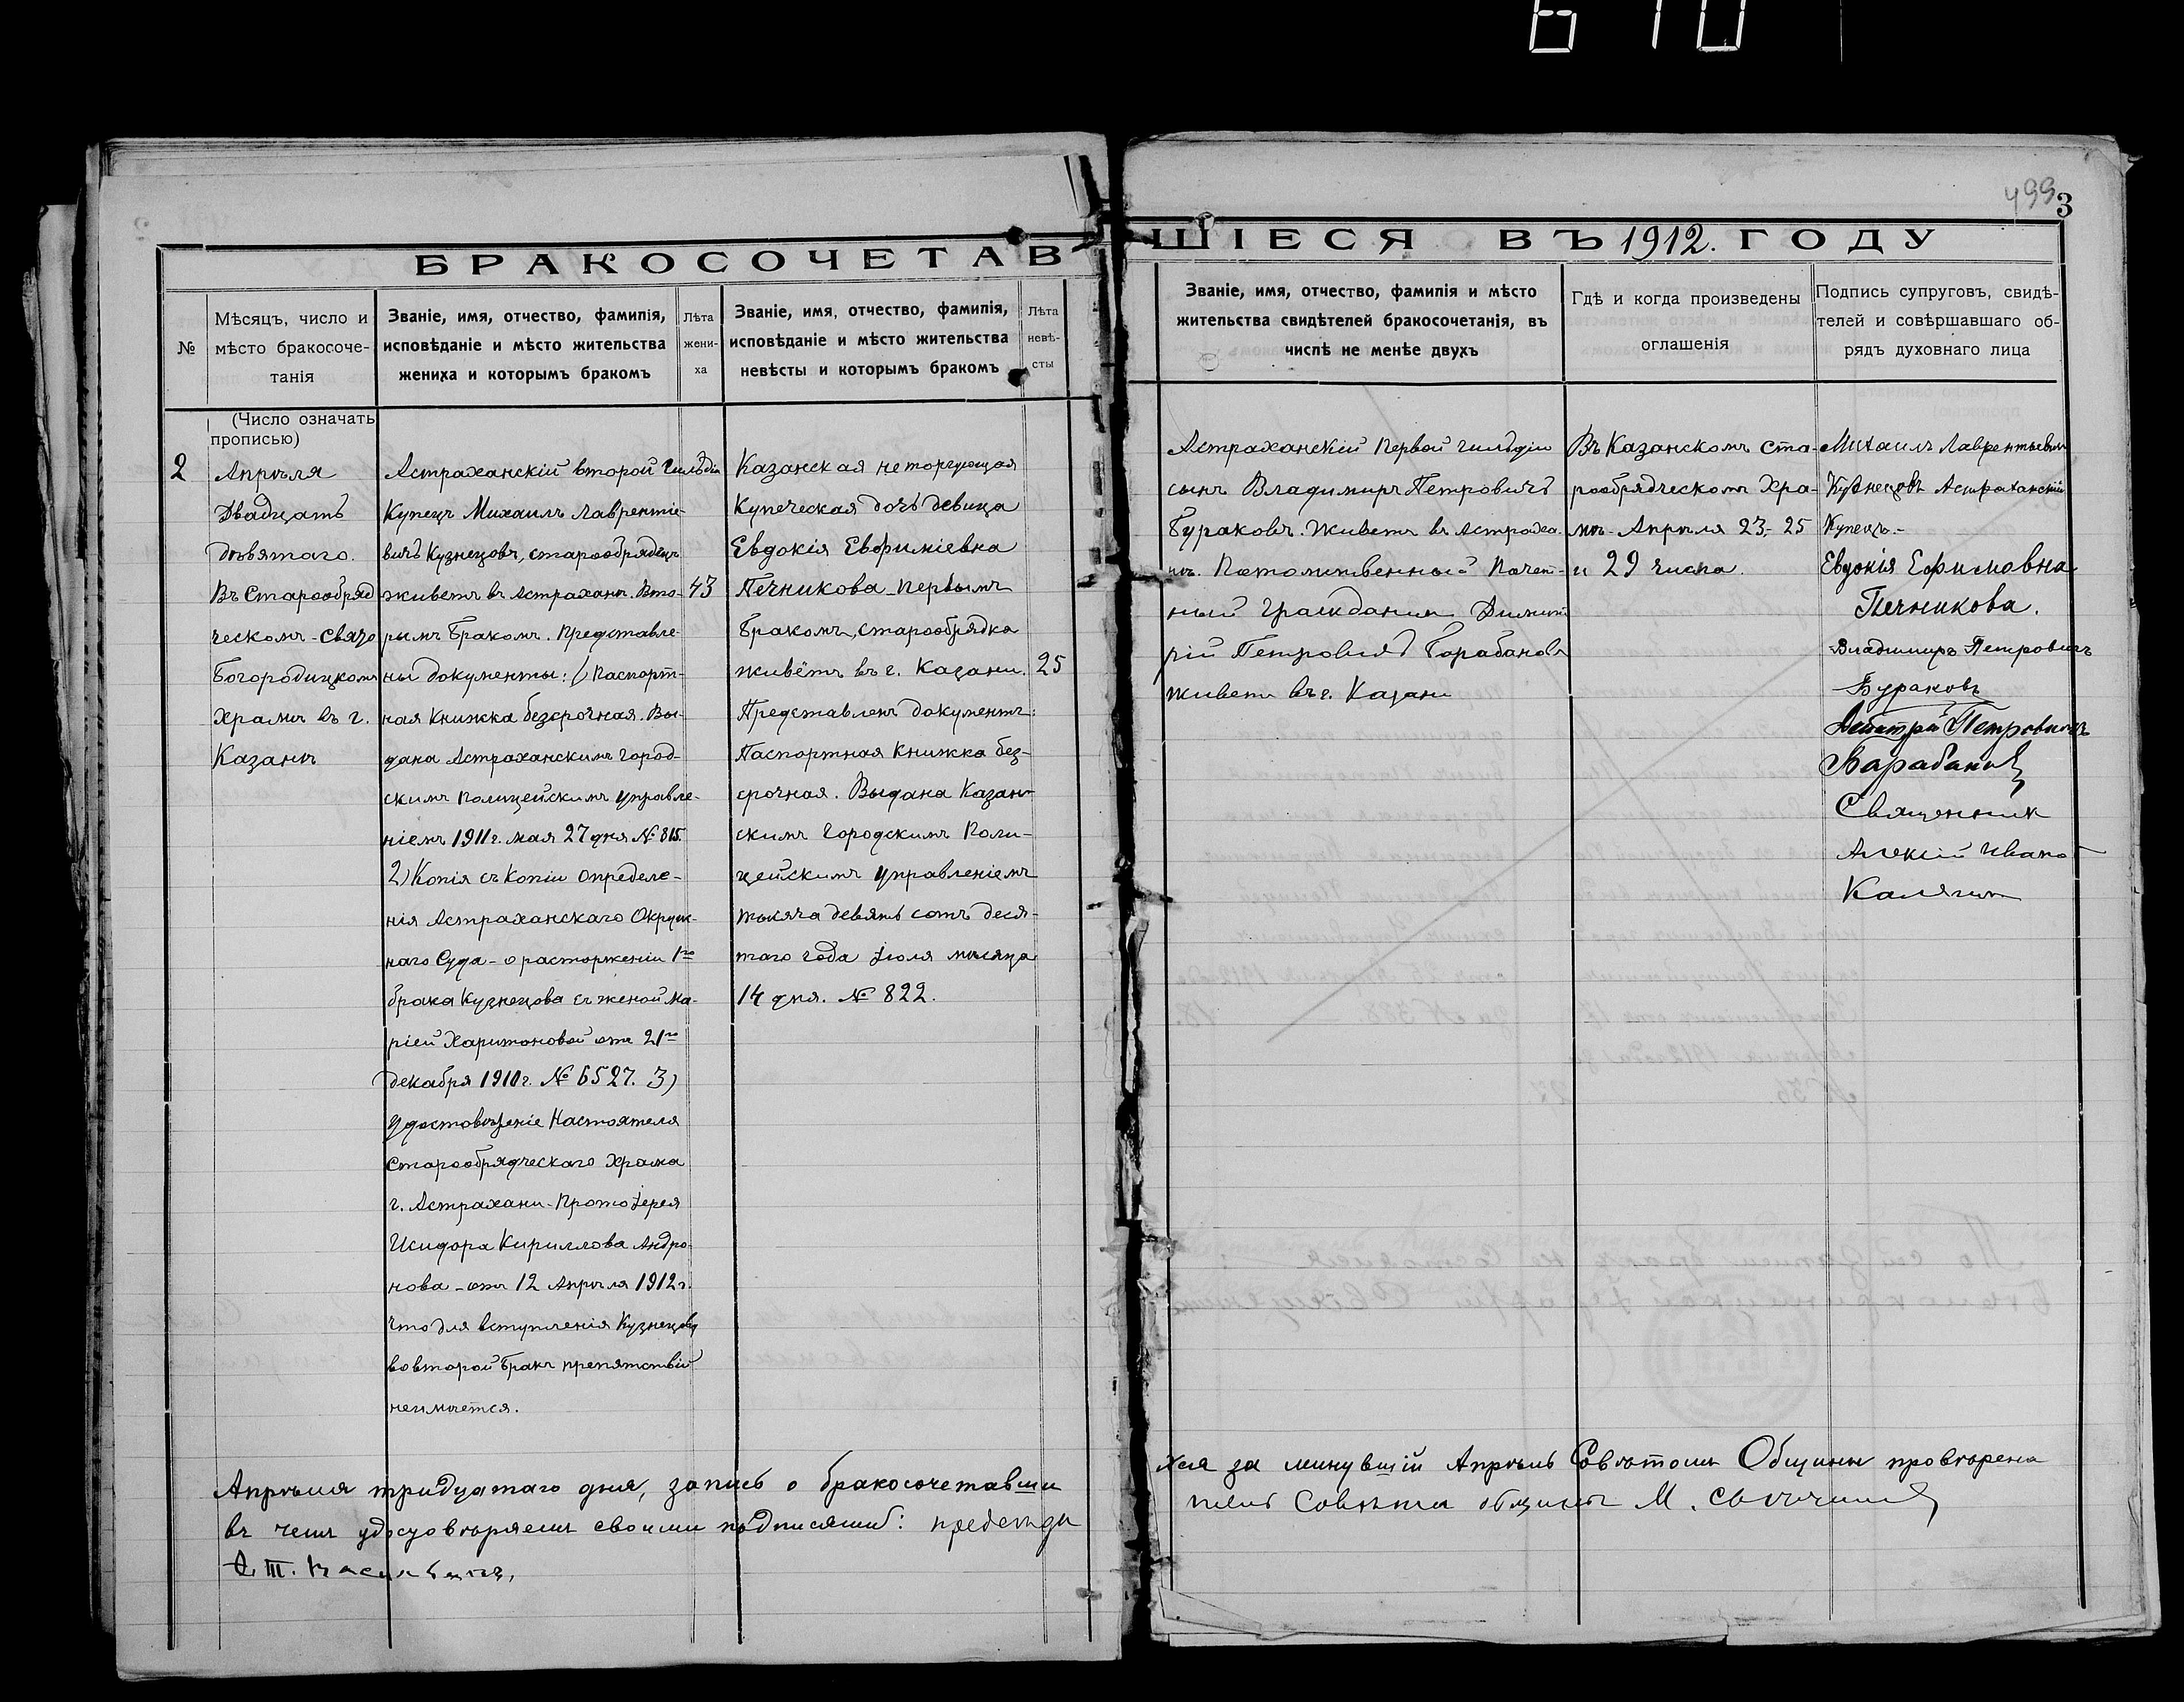 670
499
3
БРАКОСОЧЕТАВШІЕСЯ ВЪ 1912. ГОДУ
№
Мѣсяцъ, число и
мѣсто бракосоче-
танія
Званіе, имя, отчество, фамилія,
исповѣданіе и мѣсто жительства
жениха и которымъ бракомъ
Лѣта
жени-
ха
Званіе, имя, отчество, фамилія,
исповѣданіе и мѣсто жительства
невѣсты и которымъ бракомъ
Лѣта
невѣ-
сты
Званіе, имя, отчество, фамилія и мѣсто
жительства свидѣтелей бракосочетанія, въ
числѣ не менѣе двухъ
Гдѣ и когда произведены
оглашенія
Подпись супруговъ, свидѣ-
телей и совѣршавшаго об-
рядъ духовнаго лица
(Число означать
прописью)
2
Апрѣля
Двадцать
дѣвятаго.
Въ Старообряд
ческомъ-Свято
Богородицкомъ
Храмѣ въ г.
Казанѣ
Астраханскій второй Гильдіи
Купецъ Михаилъ Лаврентіе-
вичъ Кузнецовъ, старообрядецъ
живетъ въ Астрахани. Вто-
рымъ Бракомъ. Представле-
ны документы: 1) Паспорт-
ная Книжка безсрочная. Вы-
дана Астраханскимъ Город-
скимъ Полицейскимъ Управле-
ніемъ 1911 г. мая 27 дня № 815.
2) Копія съ Копіи Определе-
нія Астраханскаго Окруж-
наго Суда - о расторженіи 1го
брака Кузнецова съ женой Ма-
ріей Харитоновой отъ 21го
декабря 1910 г. № 6527. 3)
Удостовѣреніе Настоятеля
Старообрядческаго Храма
г. Астрахани-Протоіерея
Исидора Кириллова Андро-
нова - отъ 12 Апрѣля 1912 г.
что для вступленія Кузнецова
во второй Бракъ препятствій
неимѣется.
43
Казанская неторгующая
Купеческая дочь девица
Евдокія Евфиміевна
Печникова - первымъ
Бракомъ, старообрядка
живётъ въ г. Казани.
Представленъ документъ:
Паспортная Книжка без-
срочная. Выдана Казан-
скимъ Городскимъ Поли-
цейскимъ Управленіемъ
тысяча девять сотъ деся-
таго года Іюля мѣсяца
14 дня. № 822.
25
Астраханскій Первой гильдіи
сынъ Владимиръ Петровичъ
Бураковъ. Живетъ въ Астраха-
нѣ. Потомственный Почет-
ный Гражданин Димит
рій Петровичъ Барабановъ
живетъ въ г. Казани
Въ Казанскомъ Ста-
рообрядческомъ Хра-
мѣ - Апрѣля 23,- 25
и 29 числа.
Михаилъ Лаврентьевич
Кузнецовъ Астраханскій
Купецъ.-
Евдокія Ефимовна
Печникова.
Владимиръ Петровичъ
Бураковъ
Дмитрій Петровичъ
Барабановъ
Священник
Алексій Ивано
Калягин
Апрѣля тридцатаго дня, запись о бракосочетавши
хся за минувшій Апрѣль Совѣтомъ Общины провѣрена
въ чемъ удостовѣряемъ своими подписями: председа
тель Совѣта общины М.